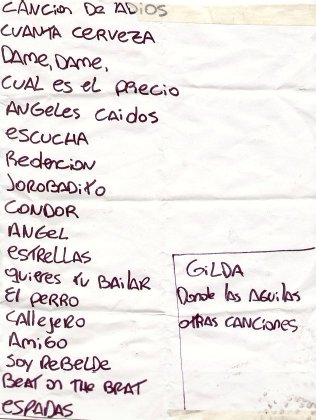 CANCION DE ADIOS
CUANTA CERVEZA
DAME, DAME,
CUAL ES EL PRECIO
ANGELES CAIDOS
ESCUCHA
REDENCION
JOROBADITO
CONDOR
ANGEL
ESTRELLAS
QUIERES TU BAILAR
EL PERRO
CALLEJERO
AMIGO
SOY REBELDE
BEAT ON THE BRAT
ESPADAS
GILDA
DONDE LAS AGUILAS
OTRAS CANCIONES